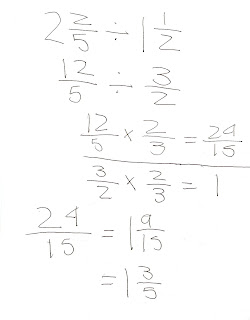 2 2/5 ÷ 1 1/2
12/5 ÷ 3/2
12/5 × 2/3 = 24/15
3/2 × 2/3 = 1
24/15 = 1 9/15
= 1 3/5